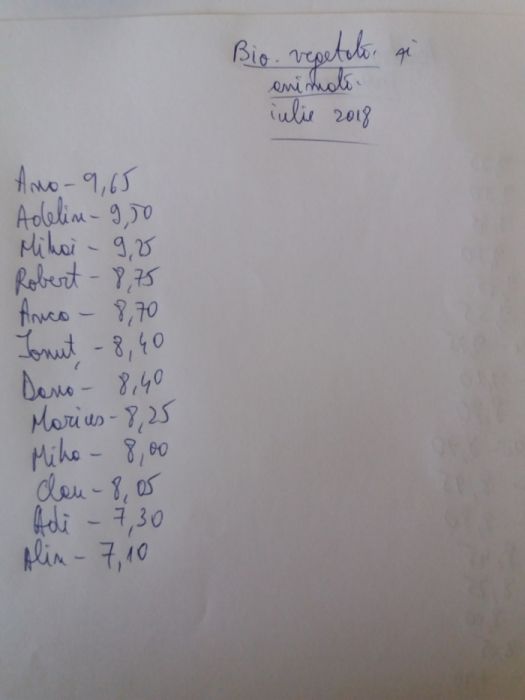 Bio. vegetală. și
animală.
iulie 2018
Ana - 9,65
Adelin - 9,50
Mihai - 9,25
Robert - 8,75
Anca - 8,70
Ionuț - 8,40
Dana - 8,40
Marius - 8,25
Miha - 8,00
Clau - 8,05
Adi - 7,30
Alin - 7,10